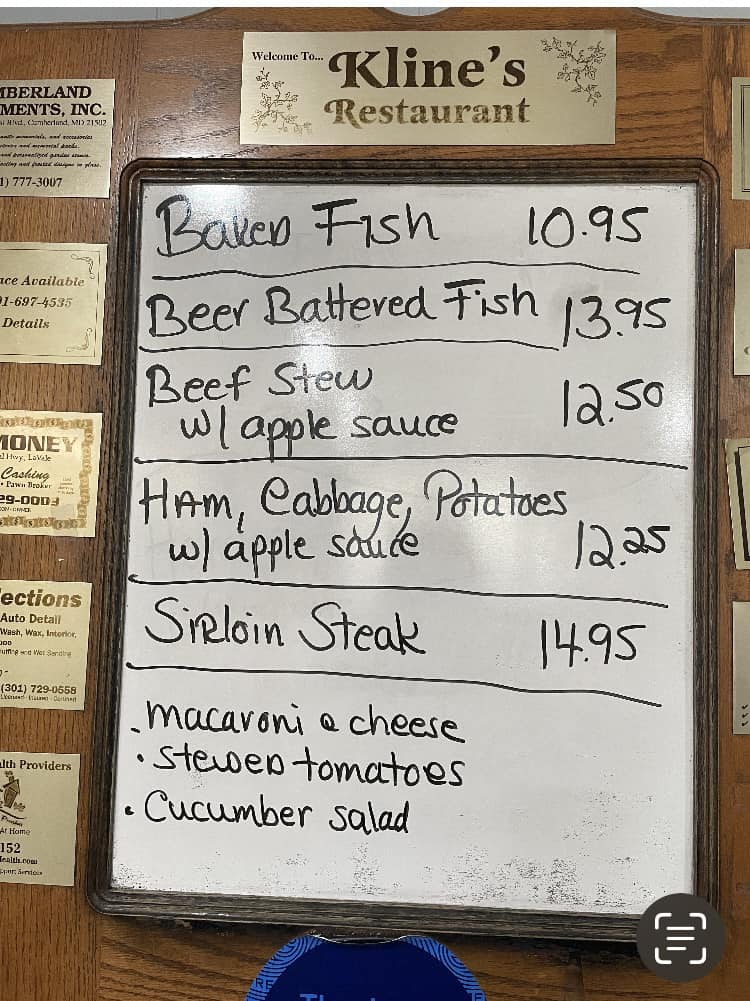 Welcome To...
Kline's
Restaurant
Baked Fish 10.95
Beer Battered Fish 13.95
Beef Stew
w/ apple sauce 12.50
Ham, Cabbage, Potatoes
w/ apple sauce 12.25
Sirloin Steak 14.95
. macaroni & cheese
. stewed tomatoes
. Cucumber salad
MBERLAND
MENTS, INC.
Blvd., Cumberland, MD 21502
1) 777-3007
ace Available
01-697-4535
Details
MONEY
Hwy, LaVale
Cashing
• Pawn Broker
29-0003
ections
Auto Detail
Wash, Wax, Interior,
(301) 729-0558
Licensed - Insured - Certified
lth Providers
At Home
152
ealth.com
pport Services